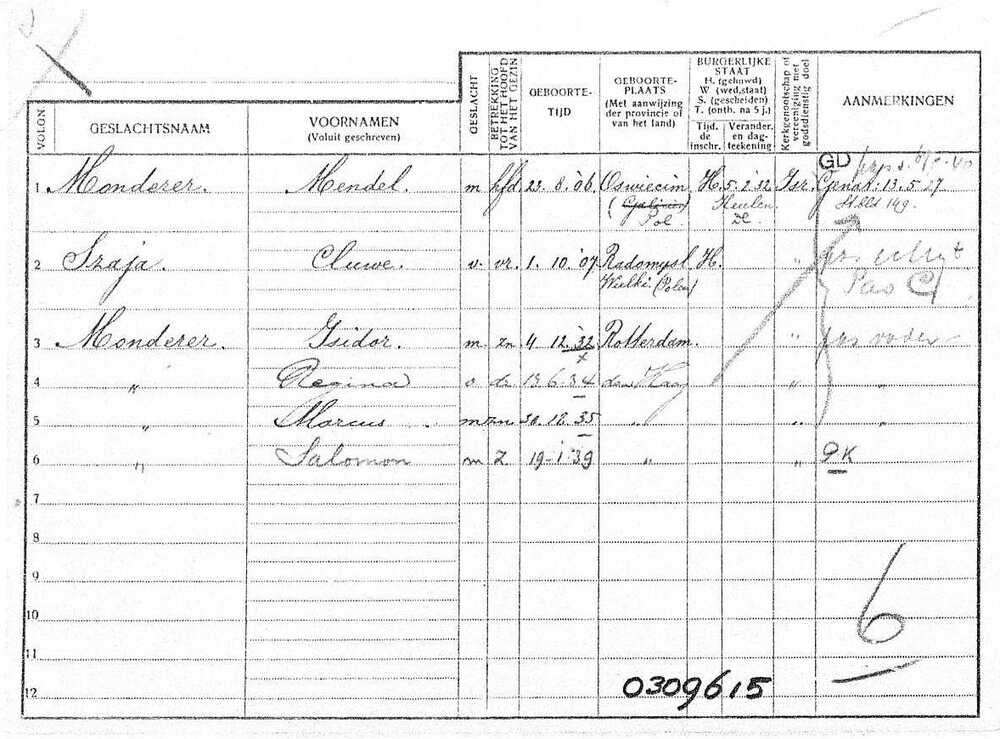 VOLGN.
GESLACHTSNAAM
VOORNAMEN
(Voluit geschreven)
GESLACHT
BETREKKING TOT HET HOOFD VAN HET GEZIN
GEBOORTE-
TIJD
GEBOORTE-
PLAATS
(Met aanwijzing
der provincie of
van het land)
BURGERLIJKE
STAAT
H. (gehuwd)
W (wed.staat)
S. (gescheiden)
T. (onth. na 5 j.)
Tijd. de inschr.
Verander. en dag- teekening
Kerkgenootschap of vereeniging met godsdienstig doel
AANMERKINGEN
GD
1 Monderer. Mendel. m hfd. 23. 8. '06 Oswiecim H. 5. 2 '32 Isr.
(Galicië) Heulen
Pol.
2 Szaja. Chuwe. v. vr. 1. 10. '07 Radomysl H. "
Wielki (Polen)
3 Monderer. Isidor. m zn 4 12. '32 Rotterdam. " prs vader
4 " Regina v dr 13.6.34 den Haag " "
5 " Marcus m zn 30. 12. 35 " " "
6 " Salomon m z. 19-1-39 " " PK
7
8
9
10
11
12
6
0309615